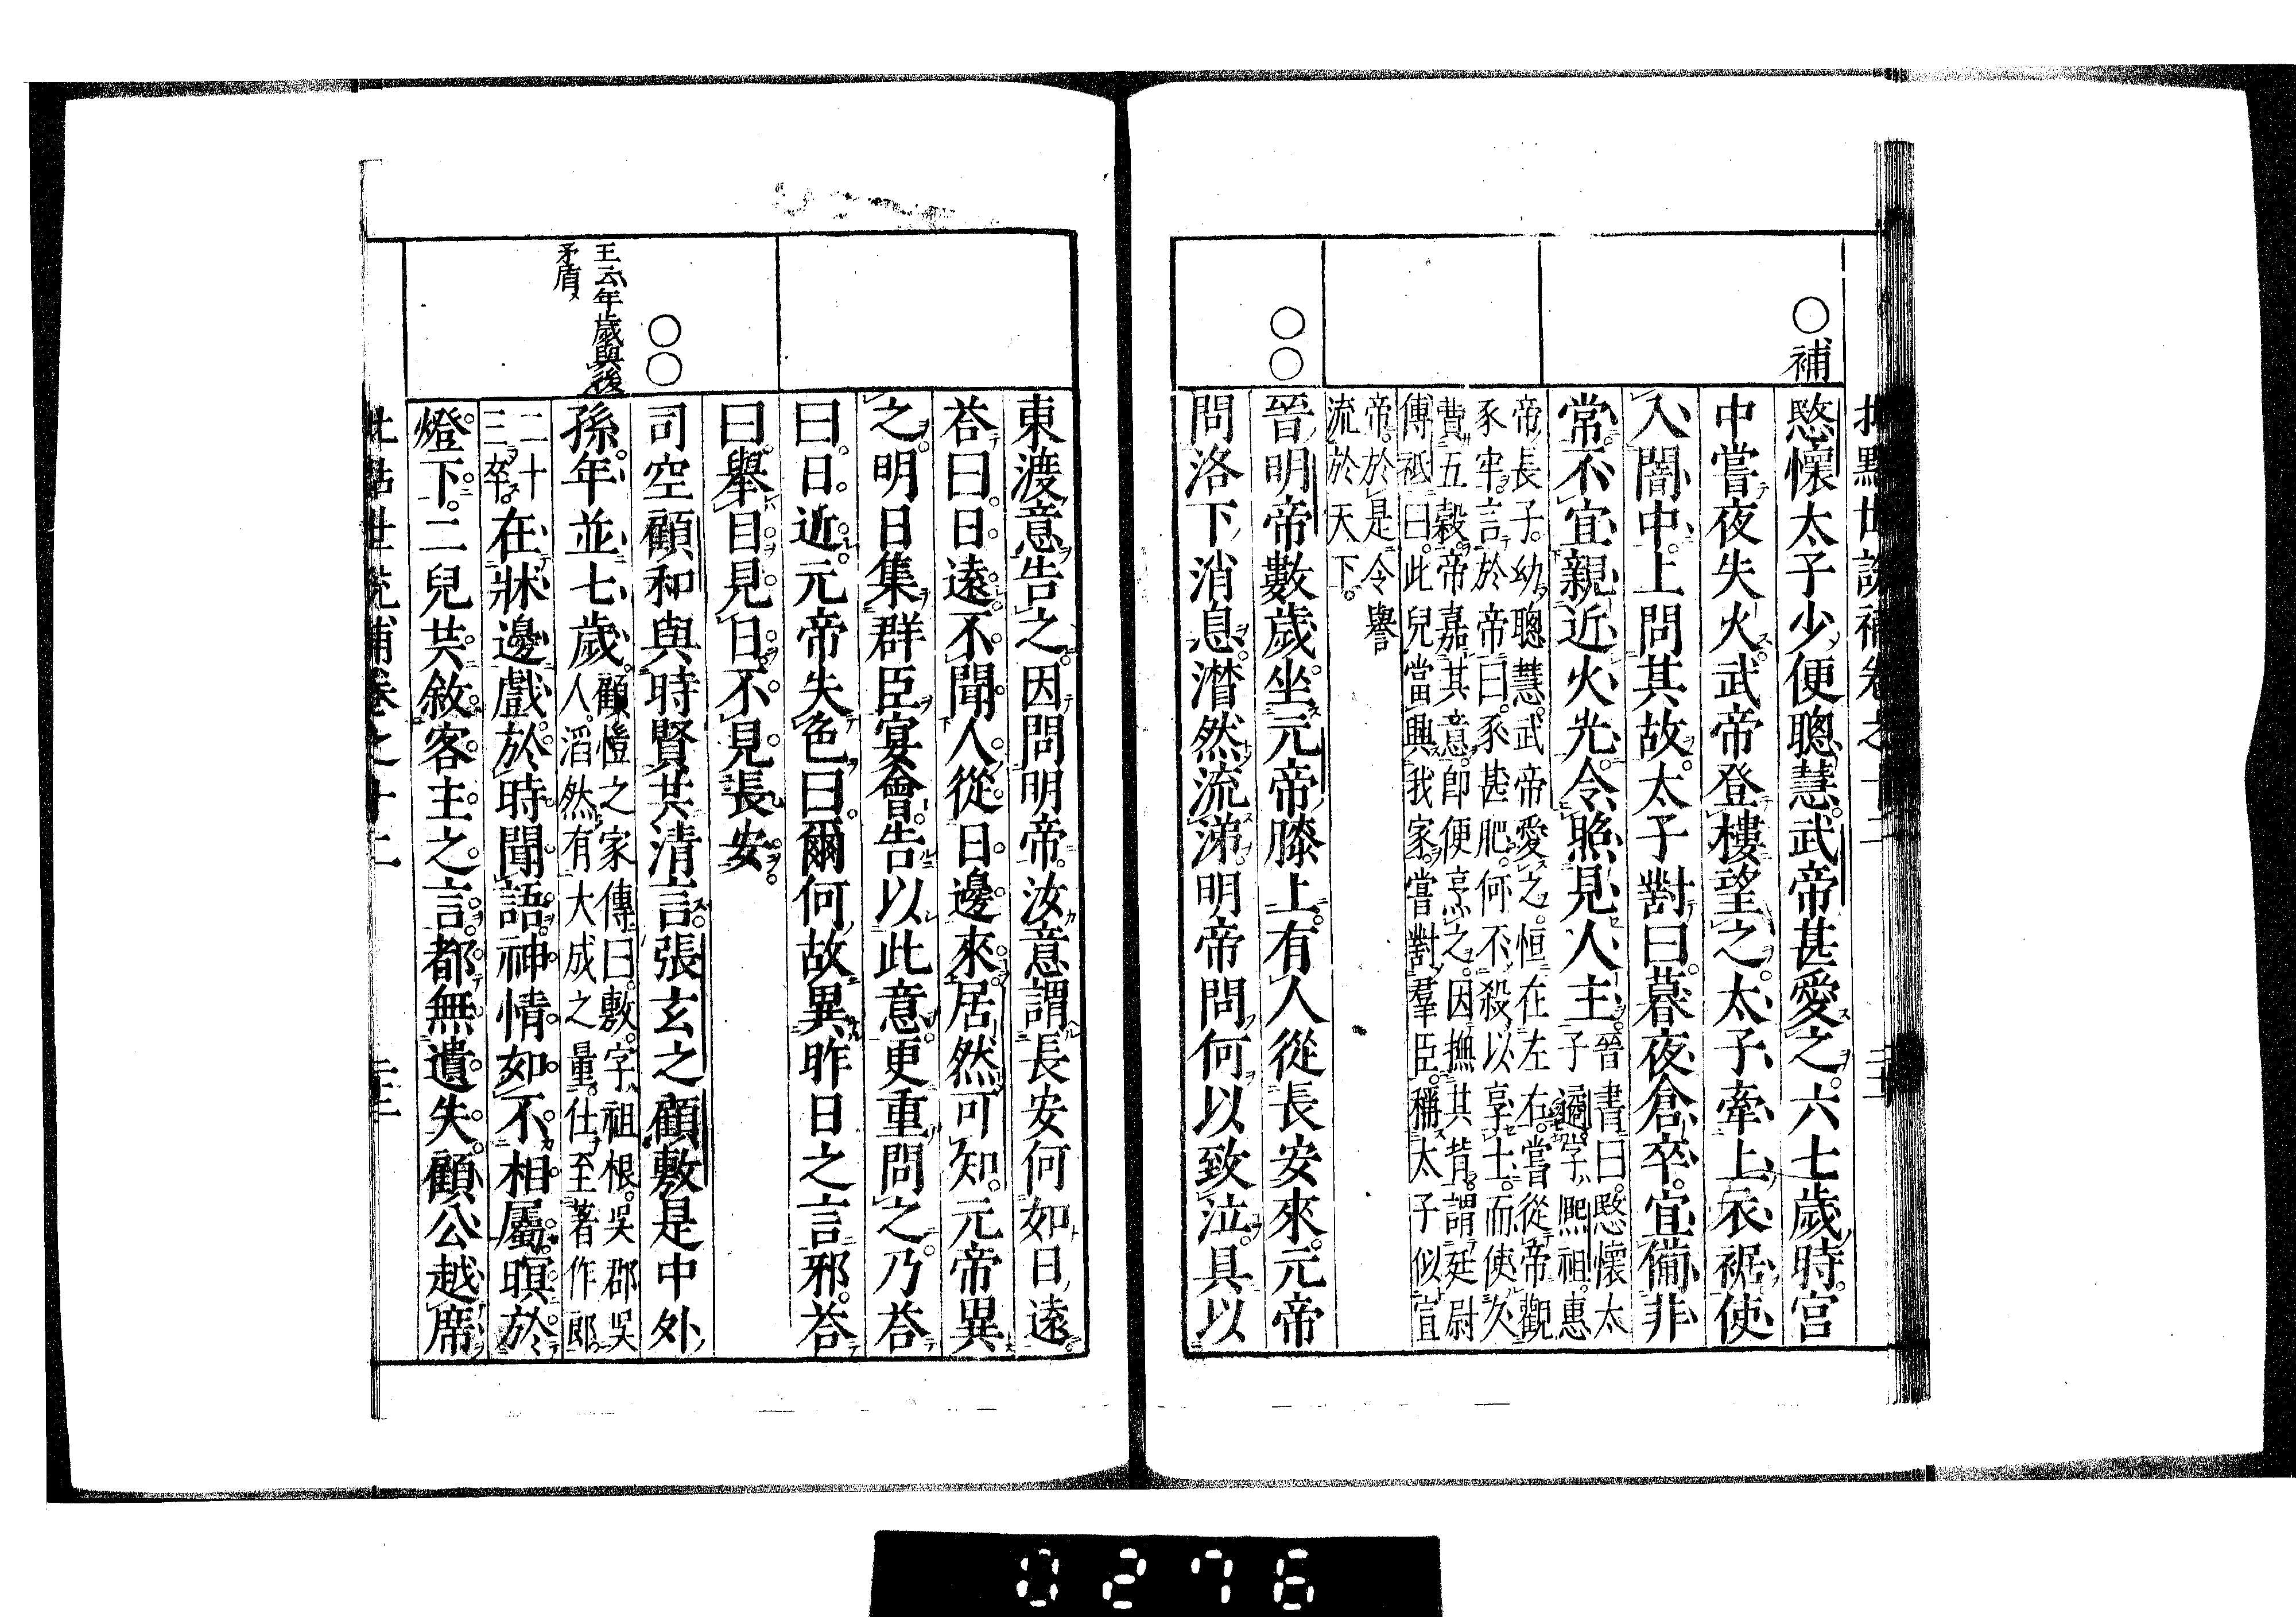 ○補
愍懷太子少便聰慧。武帝甚愛之。六七歲時。宮
中嘗夜失火。武帝登樓望之。太子牽上衣裾使
入闇中。上問其故。太子對曰。暮夜倉卒。宜備非
常。不宜親近火光。令照見人主。
晉書曰。愍懷太
子遹字熙祖。惠
帝長子。幼聰慧。武帝愛之。恒在左右。嘗從帝觀
豕牢。言於帝曰。豕甚肥。何不殺以享士。而使久
費五穀。帝嘉其意。即便烹之。因撫其背。謂廷尉
傅祗曰。此兒當興我家。嘗對羣臣。稱太子似宣
帝。於是令譽
流於天下。
○○
晉明帝數歲。坐元帝膝上。有人從長安來。元帝
問洛下消息。潸然流涕。明帝問何以致泣。具以
東渡意告之。因問明帝。汝意謂長安何如日遠。
荅曰。日遠。不聞人從日邊來。居然可知。元帝異
之。明日集群臣宴會。告以此意。更重問之。乃荅
曰。日近。元帝失色曰。爾何故異昨日之言邪。荅
曰。舉目見日。不見長安。
○○
司空顧和與時賢共清言。張玄之顧敷是中外
王云年歲與後
矛盾
孫。年並七歲。
顧愷之家傳曰。敷。字祖根。吳郡吳
人。滔然有大成之量。仕至著作郎。
二十
三卒。
在牀邊戲。於時聞語。神情如不相屬。暝於
燈下。二兒共敘客主之言。都無遺失。顧公越席
0276